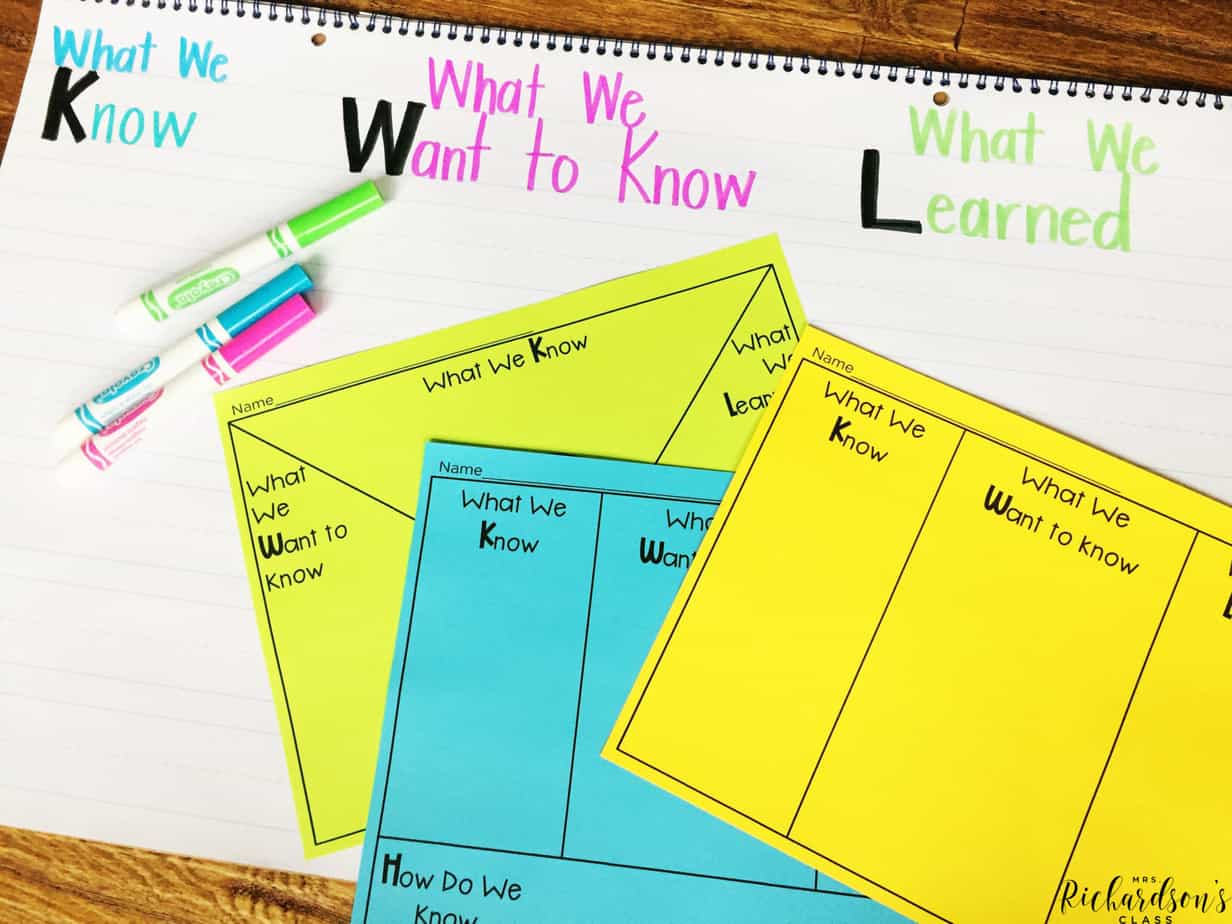 What We
Know
What We
Want to Know
What We
Learned
Crayola
Crayola
Name
What We Know
What
We
Want to
Know
What
Name
What We
Know
Want
How Do We
Know
Name
What We
Know
What We
Want to know
MRS.
Richardson's
CLASS